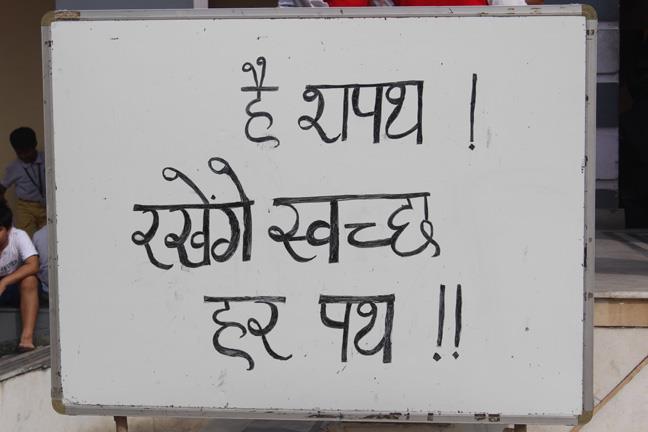 है शपथ !
रखेंगे स्वच्छ
हर पथ !!